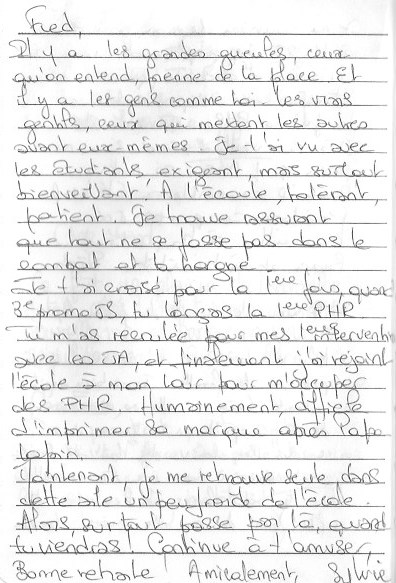 Fred,
Il y a les grandes gueules, ceux
qu'on entend, prenne de la place. Et
il y a les gens comme toi. Les vrais
gentils, ceux qui mettent les autres
avant eux-mêmes. Je t'ai vu avec
les étudiants, exigeant, mais surtout
bienveillant. A l'écoute, tolérant,
patient. Je trouve rassurant
que tout ne se passe pas dans le
combat et la hargne.
Je t'ai croisé pour la 1ère fois, quand
3e promo JS, tu lançais la 1ère PHR
Tu m'as recrutée pour mes 1ères intervent°
avec les JA, et finalement j'ai rejoint
l'école à mon tour pour m'occuper
des PHR. Humainement, difficile
d'imprimer sa marque après Papa
lapin.
Maintenant, je me retrouve seule dans
cette aile un peu froide de l'école.
Alors, surtout passe par là, quand
tu viendras! Continue à t'amuser,
Bonne retraite Amicalement, Sylvie